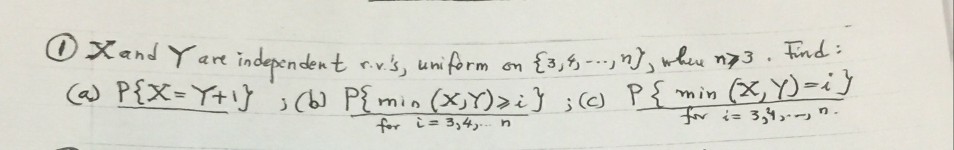 ① X and Y are independent r.v.'s, uniform on {3,4,---,n}, when n≥3. Find:
(a) P{X=Y+1} ; (b) P{min(X,Y)≥i} ; (c) P{min(X,Y)=i}
for i=3,4,.. n for i=3,4,--, n.